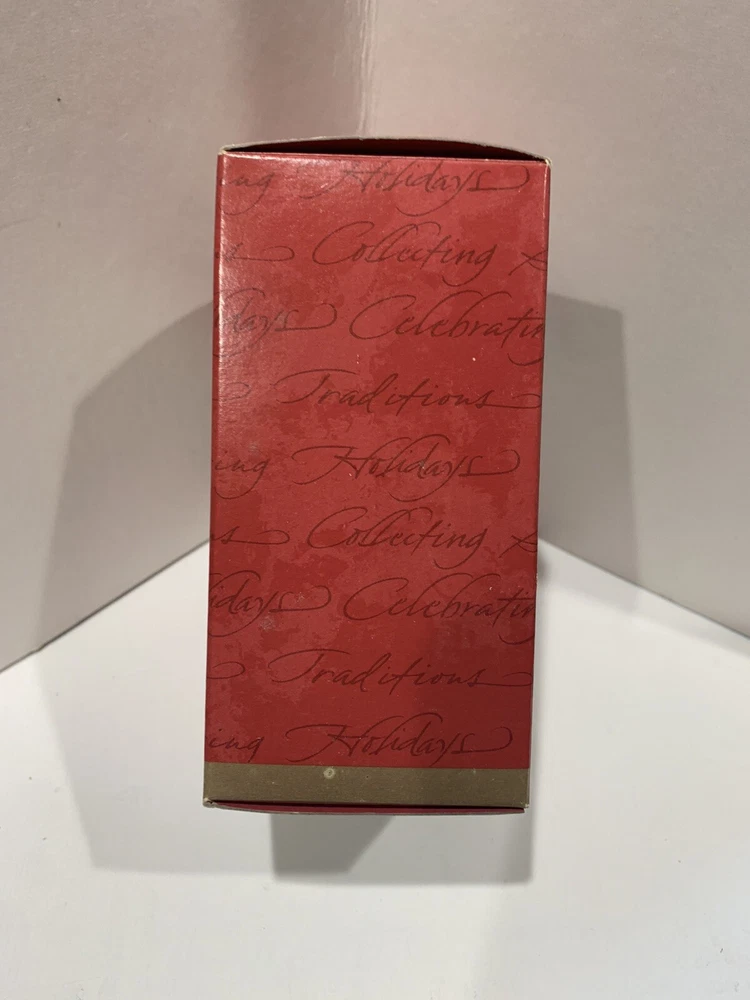 ing Holidays
s Collecting
days Celebratin
Traditions
ing Holidays
s Collecting
idays Celebratin
Traditions
ing Holidays